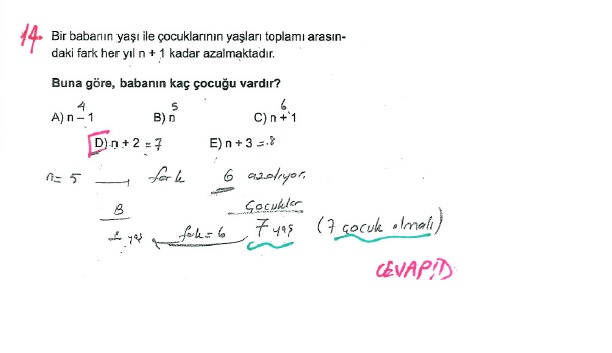 14. Bir babanın yaşı ile çocuklarının yaşları toplamı arasın-
daki fark her yıl n + 1 kadar azalmaktadır.
Buna göre, babanın kaç çocuğu vardır?
4 5 6
A) n – 1 B) n C) n + 1
D) n + 2 = 7 E) n + 3 = 8
n = 5 → fark 6 azalıyor.
B Çocuklar
1 yaş fark = 6 7 yaş (7 çocuk olmalı)
CEVAP: D